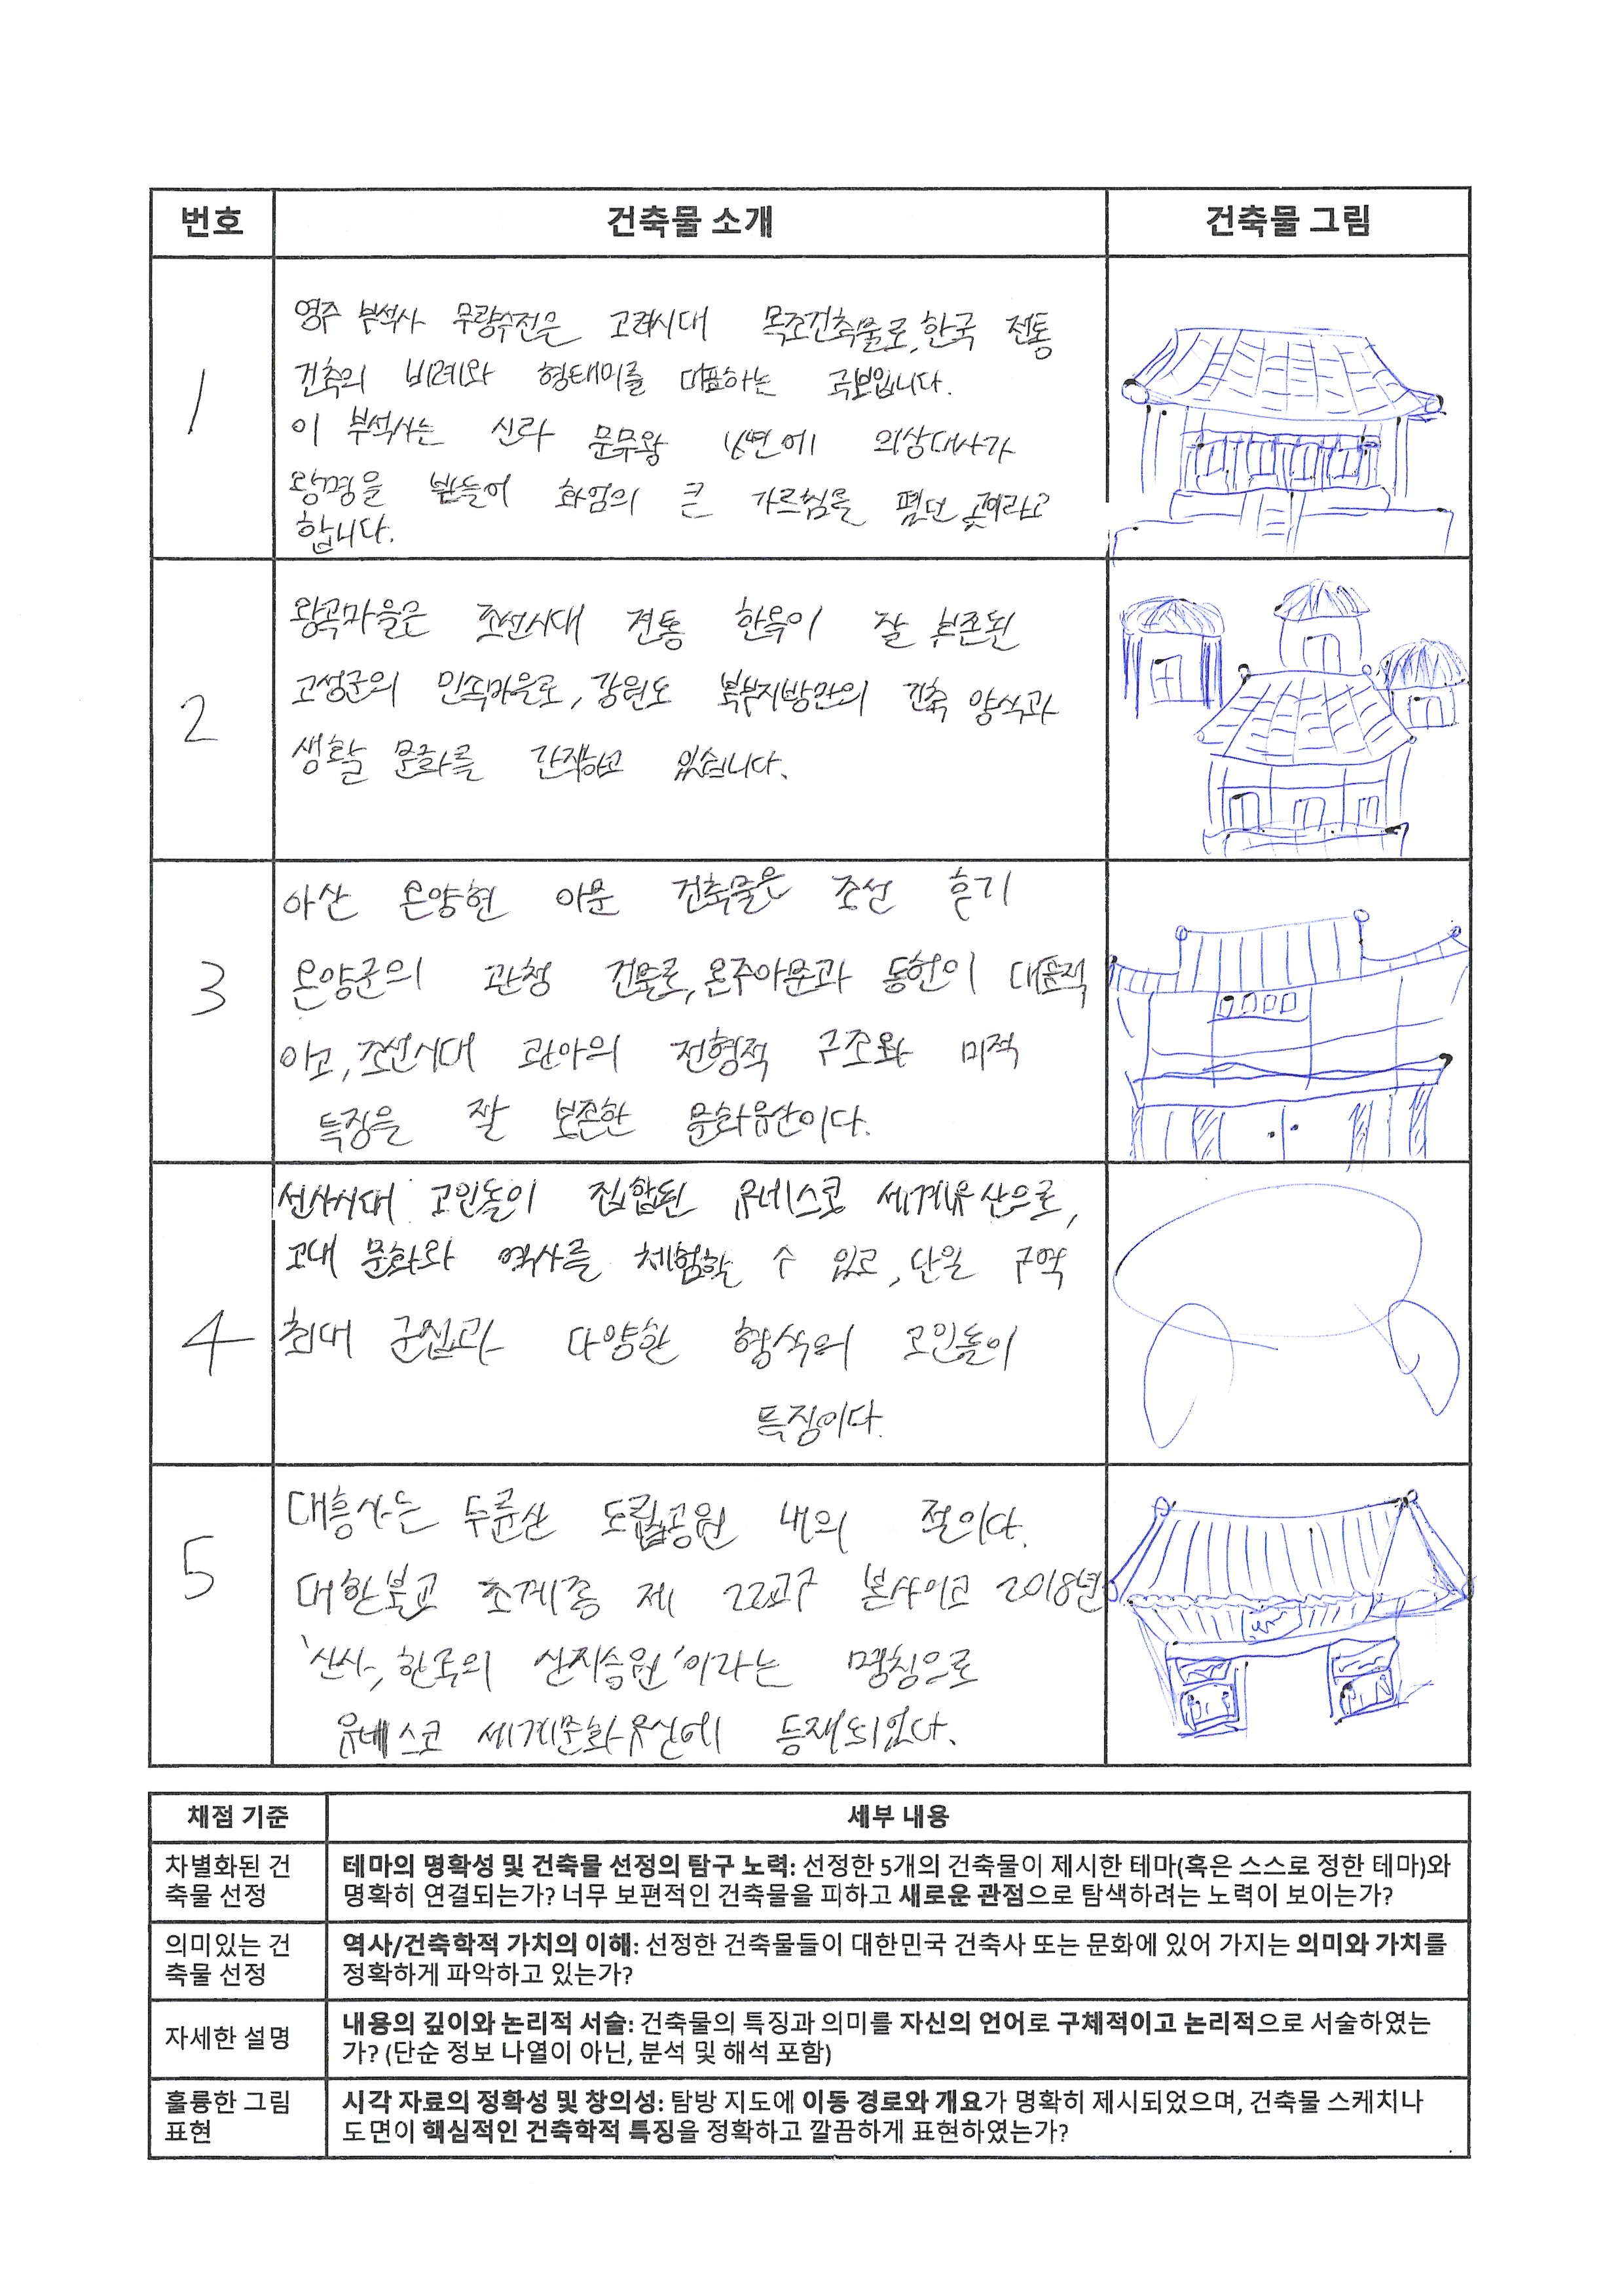 번호
건축물 소개
건축물 그림
1
영주 부석사 무량수전은 고려시대 목조건축물로, 한국 전통
건축의 비례와 형태미를 대표하는 국보입니다.
이 부석사는 신라 문무왕 16년에 의상대사가
왕명을 받들어 화엄의 큰 가르침을 폈던 곳이라고
합니다.
2
왕곡마을은 조선시대 전통 한옥이 잘 보존된
고성군의 민속마을로, 강원도 북부지방만의 건축 양식과
생활 문화를 간직하고 있습니다.
3
아산 온양현 아문 건축물은 조선 후기
온양군의 관청 건물로, 온주아문과 동헌이 대표적
이고, 조선시대 관아의 전형적 구조와 미적
특징을 잘 보존한 문화유산이다.
4
선사시대 고인돌이 집합된 유네스코 세계유산으로,
고대 문화와 역사를 체험할 수 있고, 단일 구역
최대 군집과 다양한 형식의 고인돌이
특징이다.
5
대흥사는 두륜산 도립공원 내의 절이다.
대한불교 조계종 제 22교구 본사이고 2018년
'산사, 한국의 산지승원'이라는 명칭으로
유네스코 세계문화유산에 등재되었다.
채점 기준
세부 내용
차별화된 건
축물 선정
테마의 명확성 및 건축물 선정의 탐구 노력: 선정한 5개의 건축물이 제시한 테마(혹은 스스로 정한 테마)와
명확히 연결되는가? 너무 보편적인 건축물을 피하고 새로운 관점으로 탐색하려는 노력이 보이는가?
의미있는 건
축물 선정
역사/건축학적 가치의 이해: 선정한 건축물들이 대한민국 건축사 또는 문화에 있어 가지는 의미와 가치를
정확하게 파악하고 있는가?
자세한 설명
내용의 깊이와 논리적 서술: 건축물의 특징과 의미를 자신의 언어로 구체적이고 논리적으로 서술하였는
가? (단순 정보 나열이 아닌, 분석 및 해석 포함)
훌륭한 그림
표현
시각 자료의 정확성 및 창의성: 탐방 지도에 이동 경로와 개요가 명확히 제시되었으며, 건축물 스케치나
도면이 핵심적인 건축학적 특징을 정확하고 깔끔하게 표현하였는가?